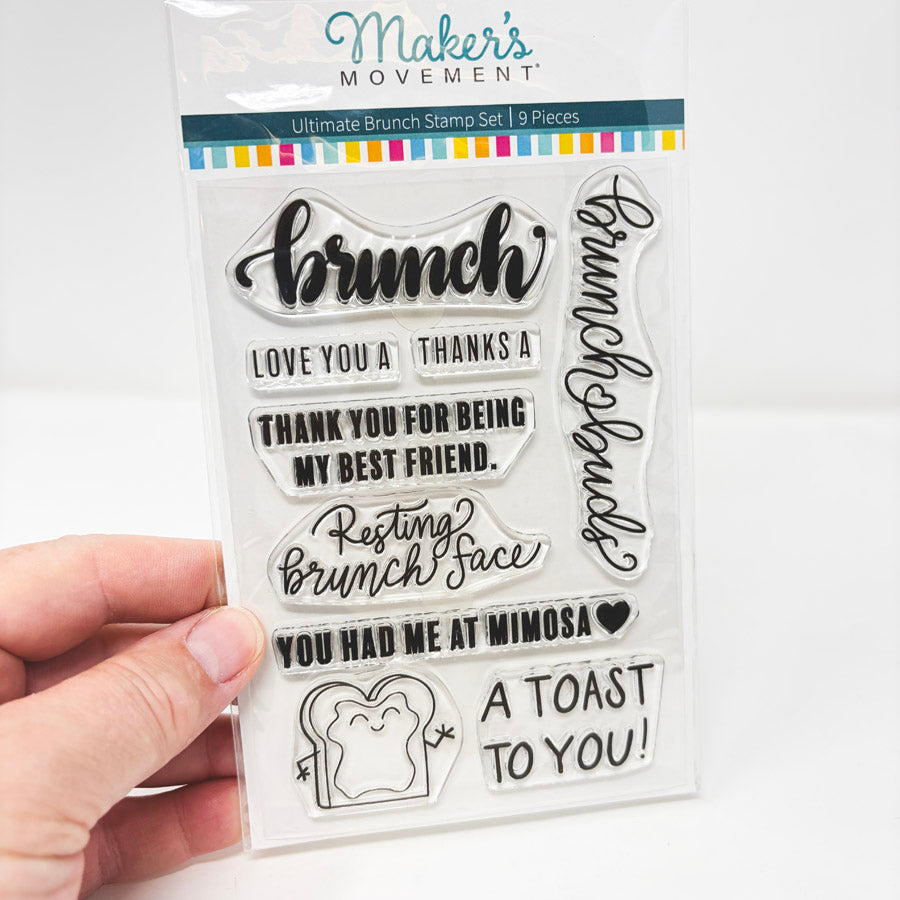 Maker's
MOVEMENT®
Ultimate Brunch Stamp Set | 9 Pieces
brunch
brunch buds
LOVE YOU A
THANKS A
THANK YOU FOR BEING
MY BEST FRIEND.
Resting
brunch face
YOU HAD ME AT MIMOSA♥
A TOAST
TO YOU!